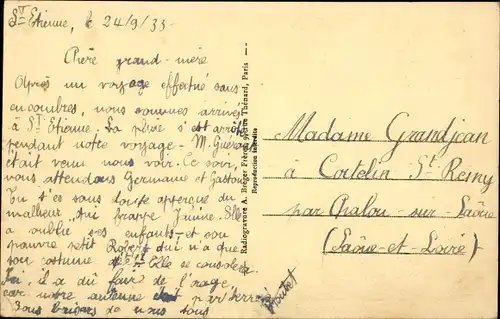 St Etienne, le 24/9/35
Chère grand-mère
Après un voyage effectué sans
encombres, nous sommes arrivés
à St Etienne. La pluie s'est arrêté
pendant notre voyage - M. Gueraq
était venu nous voir. Ce soir,
nous attendons Germaine et Gaston
Tu t'es sans doute aperçue du
malheur qui frappe Janine. Elle
a oublié ses enfants - et son
pauvre petit Robert qui n'a que
son costume de Elle se consolera
Ici, il a dû faire de l'orage,
car notre antenne était par terre
Bons baisers de nous tous
Radiogravure A. Breger Frères, 9, rue Thénard, Paris
Reproduction interdite
Madame Grandjean
à Cortelin St Remy
par Chalon-sur-Saône
(Saône-et-Loire)